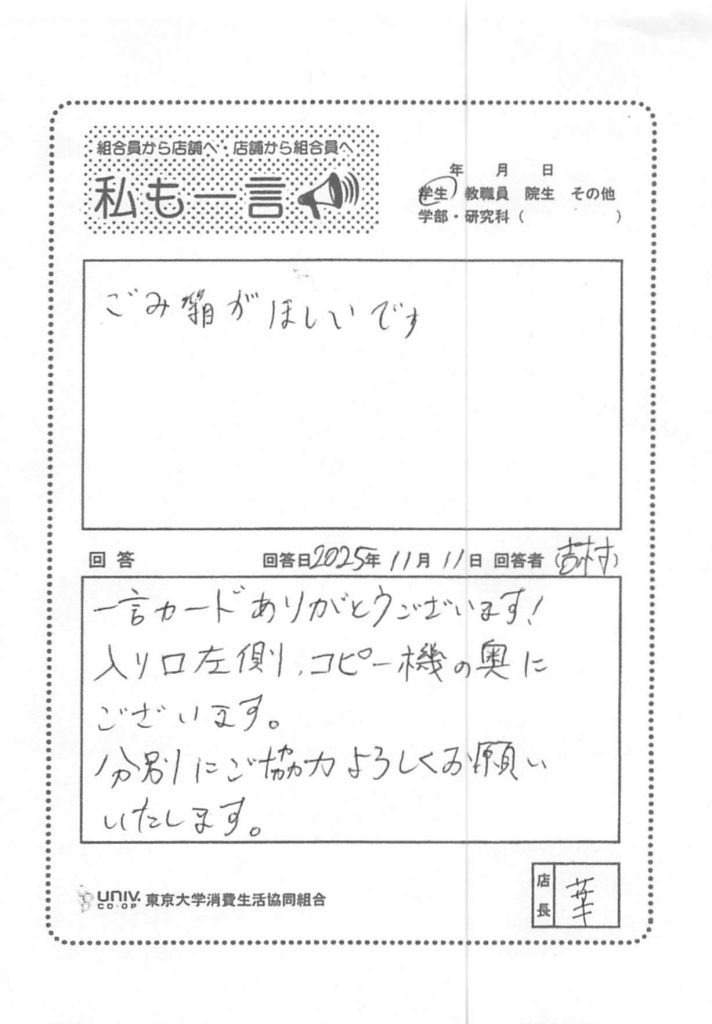 組合員から店舗へ・店舗から組合員へ
私も一言
年 月 日
学生 教職員 院生 その他
学部・研究科（ ）
ごみ箱がほしいです
回答 回答日2025年11月11日 回答者（吉村）
一言カードありがとうございます!
入り口左側、コピー機の奥に
ございます。
分別にご協力よろしくお願い
いたします。
UNIV. CO-OP 東京大学消費生活協同組合
店長